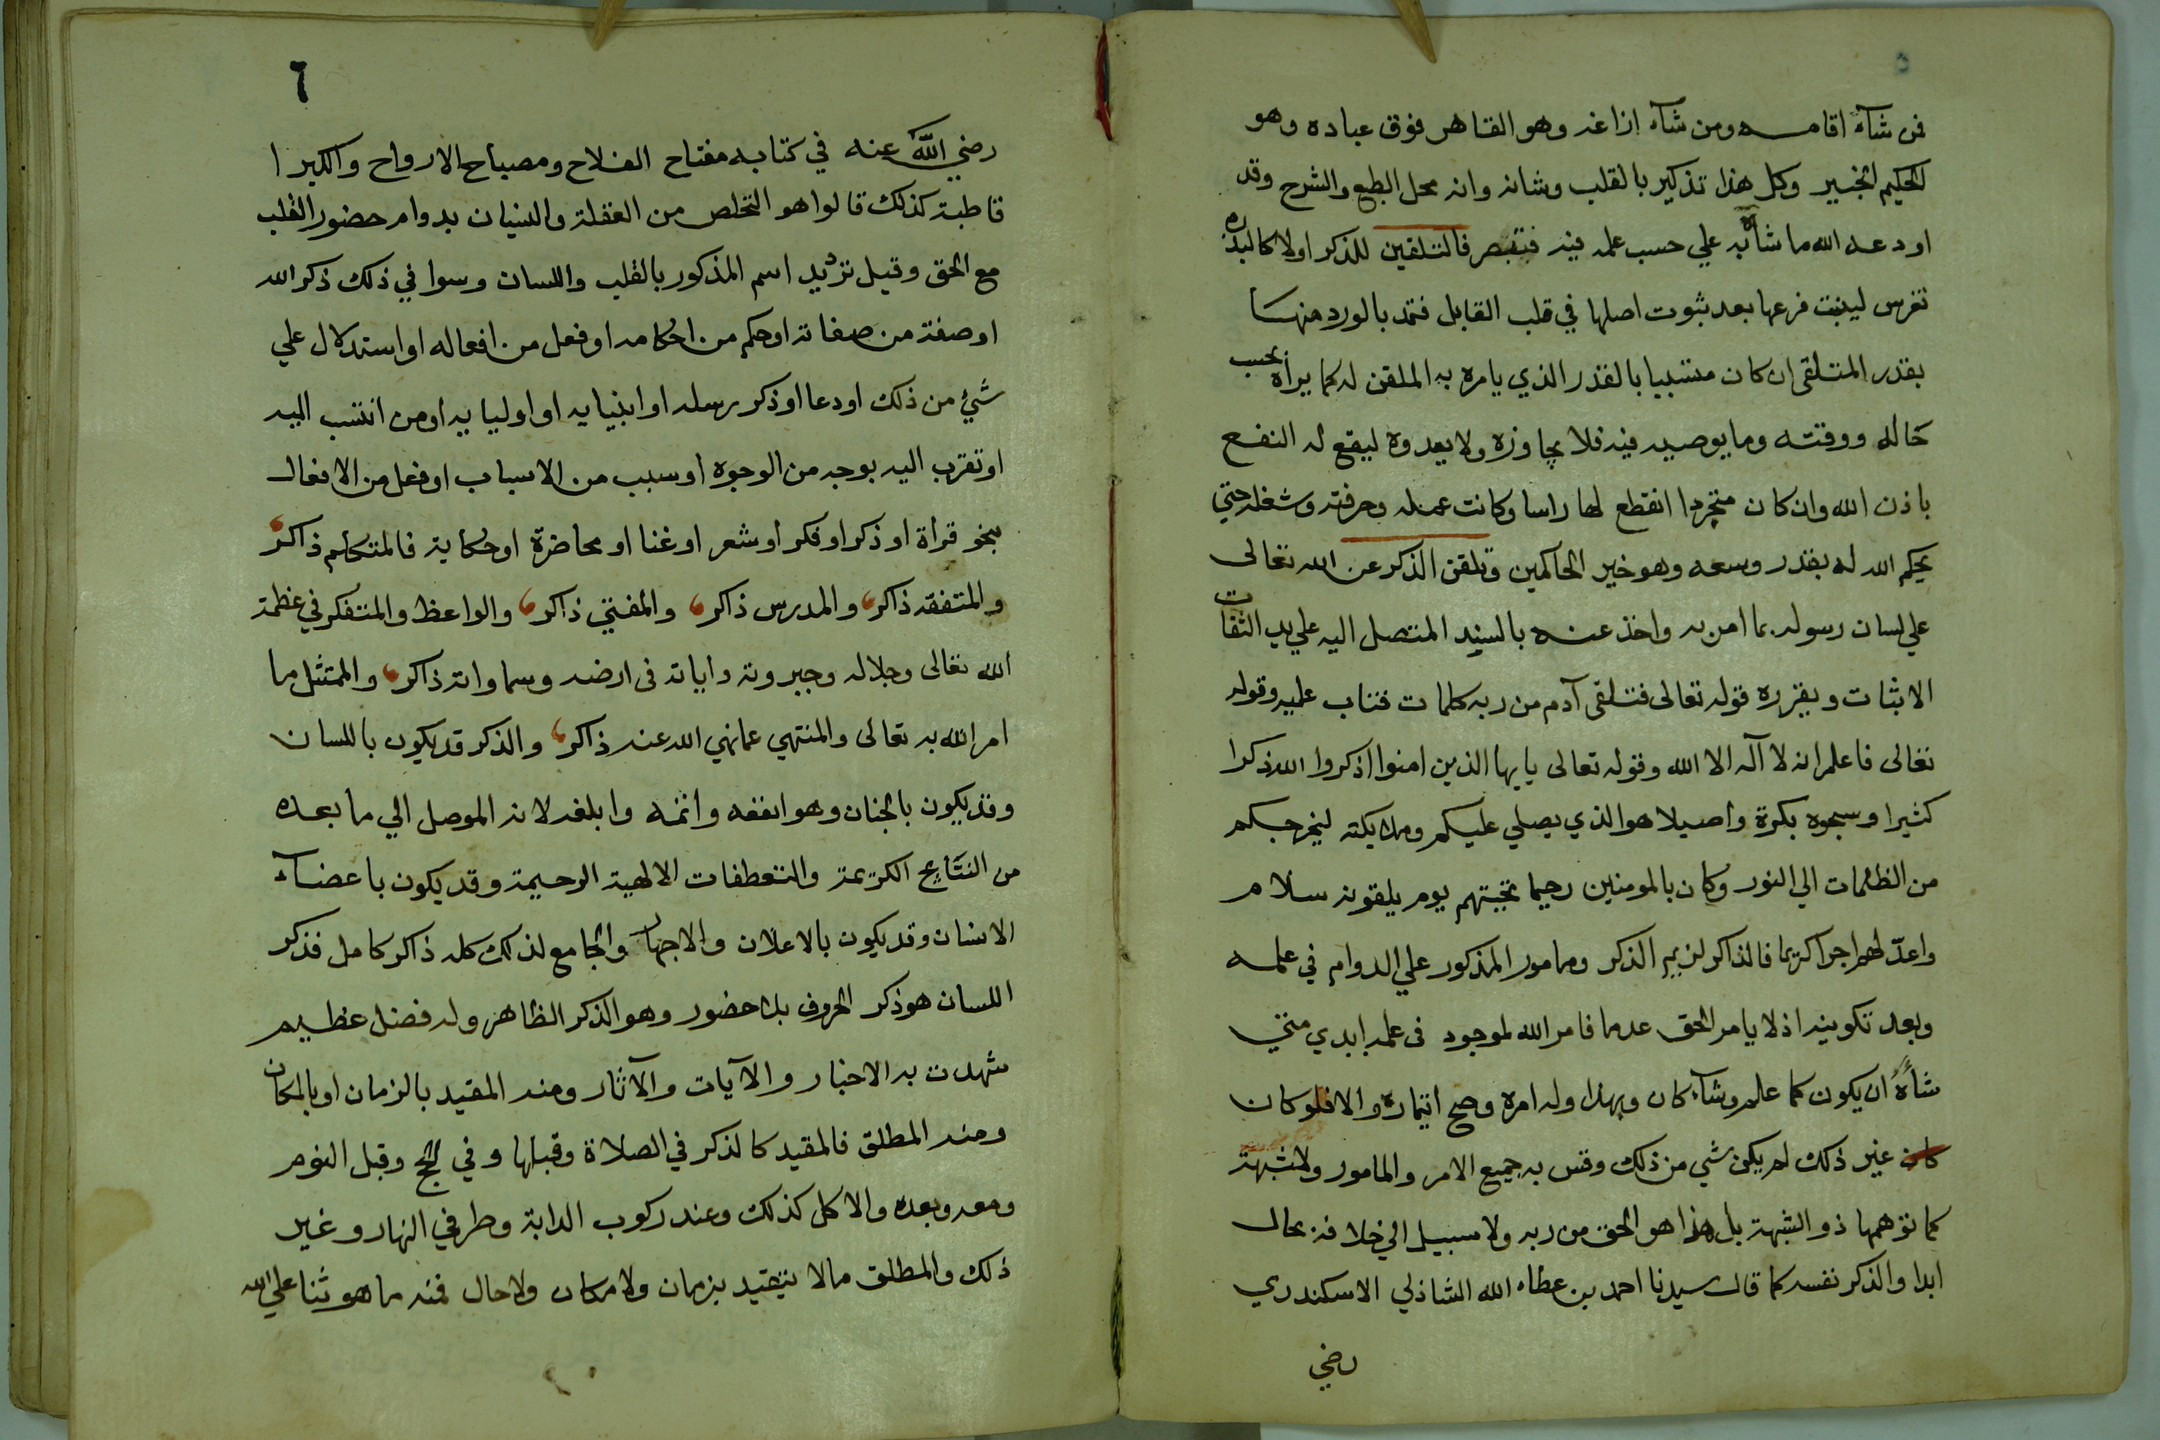 ٥
فمن شآء اقامه ومن شآء ازاغه وهو القاهر فوق عباده وهو
الحكيم الخبير وكل هذا تذكير بالقلب وشانه وانه محل الطبع والشرح وقد
اودعه الله ما شاءه به علي حسب علمه فيه فتبصر فالتلقين للذكر اولا كالبذره
تغرس لينبت فرعها بعد ثبوت اصلها في قلب القابل فتمد بالورد منها
بقدر المتلقي ان كان متسببا بالقدر الذي يامره به الملقن له كما يراه بحسب
حاله ووقته وما يوصيه فيه فلا يجاوزه ولا يعدوه ليقع له النفع
باذن الله وان كان متجردا انقطع لها راسا وكانت عمله وحرفته وشغله حتي
يحكم الله له بقدر وسعه وهو خير الحاكمين وتلقن الذكر عن الله تعالى
علي لسان رسوله بما امن به واخذ عنه بالسند المتصل اليه علي يد الثقات
الاثبات ويقرره قوله تعالى فتلقى آدم من ربه كلمات فتاب عليه وقوله
تعالى فاعلم انه لا آله الا الله وقوله تعالى يايها الذين امنوا اذكروا الله ذكرا
كثيرا وسبحوه بكرة واصيلا هو الذي يصلي عليكم وملايكته ليخرجكم
من الظلمات الي النور وكان بالمومنين رحيما تحيتهم يوم يلقونه سلام
واعدّ لهم اجرا كريما فالذاكر لزيم الذكر ومامور المذكور علي الدوام في علمه
وبعد تكوينه اذ لا يامر الحق عدما فامر الله لموجود في علمه ابدي متي
شاءه ان يكون كما علم وشآء كان وبهذا وله امره وصح ائتماره والا فلو كان
كان غير ذلك لم يكن شي من ذلك وقس به جميع الامر والمامور ولا شبهة
كما توهمها ذو الشبهة بل هذا هو الحق من ربه ولا سبيل الي خلافه بحال
ابدا والذكر نفسه كما قال سيدنا احمد بن عطاء الله الشاذلي الاسكندري
رضي
٦
رضي الله عنه في كتابه مفتاح الفلاح ومصباح الارواح والكبرا
قاطبة كذلك قالوا هو التخلص من الغفلة والنسيان بدوام حضور القلب
مع الحق وقيل ترديد اسم المذكور بالقلب واللسان وسوا في ذلك ذكر الله
او صفة من صفاته او حكم من احكامه او فعل من افعاله او استدلال علي
شيء من ذلك او دعا او ذكر رسله او انبيايه او اوليايه او من انتسب اليه
او تقرب اليه بوجه من الوجوه او سبب من الاسباب او فعل من الافعال
بنحو قرأة او ذكر او فكر او شعر او غنا او محاضرة او حكاية فالمتكلم ذاكر
والمتفقه ذاكر والمدرس ذاكر والمفتي ذاكر والواعظ والمتفكر في عظمة
الله تعالى وجلاله وجبروته واياته في ارضه وسماواته ذاكر والممتثل ما
امر الله به تعالى والمنتهي عما نهي الله عنه ذاكر والذكر قد يكون باللسان
وقد يكون بالجنان وهو انفعه وأتمه وابلغه لانه الموصل الي ما بعده
من النتايج الكريمة والتعطفات الالهية الرحيمة وقد يكون باعضآء
الانسان وقد يكون بالاعلان والاجهار والجامع لذلك كله ذاكر كامل فذكر
اللسان هو ذكر الحروف بلا حضور وهو الذكر الظاهر وله فضل عظيم
شهدت به الاخبار والآيات والآثار ومنه المقيد بالزمان او بالمكان
ومنه المطلق فالمقيد كالذكر في الصلاة وقبلها وفي الحج وقبل النوم
ومعه وبعده والاكل كذلك وعند ركوب الدابة وطرفي النهار وغير
ذلك والمطلق ما لا يتقيد بزمان ولا مكان ولا حال فمنه ما هو ثنا علي الله